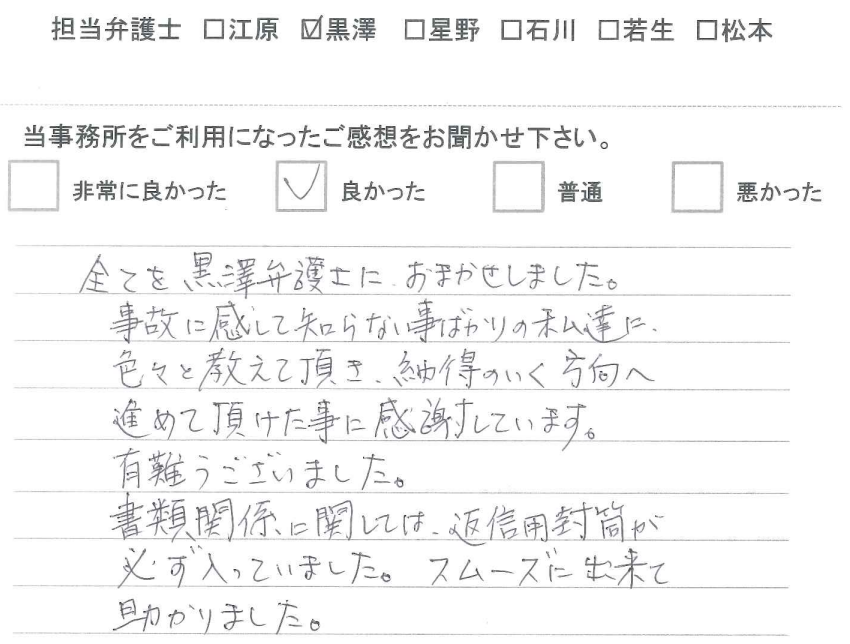 担当弁護士 □江原 ☑黒澤 □星野 □石川 □若生 □松本
当事務所をご利用になったご感想をお聞かせ下さい。
□ 非常に良かった ☑ 良かった □ 普通 □ 悪かった
全てを黒澤弁護士に、おまかせしました。
事故に感して知らない事ばかりの私達に、
色々と教えて頂き、納得のいく方向へ
進めて頂けた事に感謝しています。
有難うございました。
書類関係に関しては、返信用封筒が
必ず入っていました。スムーズに出来て
助かりました。